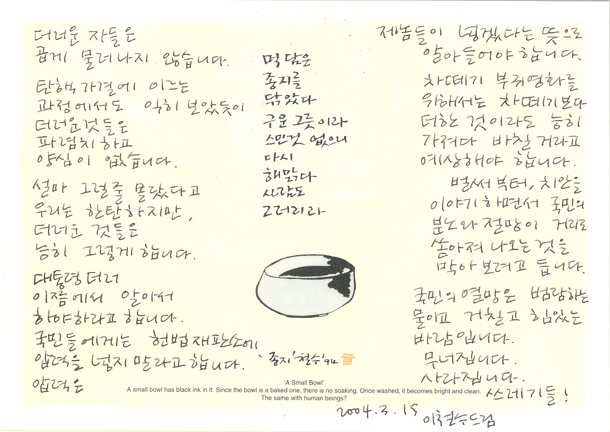 더러운 자들은
곱게 물러나지 않습니다.
탄핵가결에 이르는
과정에서도 익히 보았듯이
더러운것들은
파렴치하고
양심이 없습니다.
설마 그럴줄 몰랐다고
우리는 한탄하지만,
더러운 것들은
능히 그렇게 합니다.
대통령더러
이쯤에서 알아서
하야하라고 합니다.
국민들에게는 헌법재판소에
압력을 넣지 말라고 합니다.
압력은
먹 담은
종지를
닦았다
구운 그릇이라
스민것 없으니
다시
해맑다
사람도
그러리라
'종지' 철수 '94
'A Small Bowl'
A small bowl has black ink in it. Since the bowl is a baked one, there is no soaking. Once washed, it becomes bright and clean.
The same with human beings?
제놈들이 넣겠다는 뜻으로
알아들어야 합니다.
차떼기 부퀴영화를
위해서는 차떼기보다
더한 것이라도 능히
가져다 바칠 거라고
예상해야 합니다.
벌써부터, 치안을
이야기하면서 국민의
분노와 절망이 거리로
쏟아져 나오는 것을
막아보려고 듭니다.
국민의 열망은 범람하는
물이고 거칠고 힘있는
바람입니다.
무너집니다.
사라집니다.
쓰레기들!
2004.3.15
이철수드림